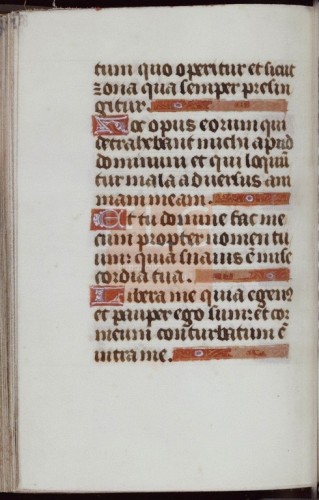 tum quo operitur et sicut
zona qua semper precin
gitur.
Hoc opus eorum qui
detrahebant michi apud
dominum et qui loquūt
tur mala adversus ani
mam meam.
Et tu domine fac me
cum propter nomen tu
um: quia suavis ē mise
cordia tua.
Libera me quia egenꝰ
et pauper ego sum: et cor
meum conturbatum ē
intra me.